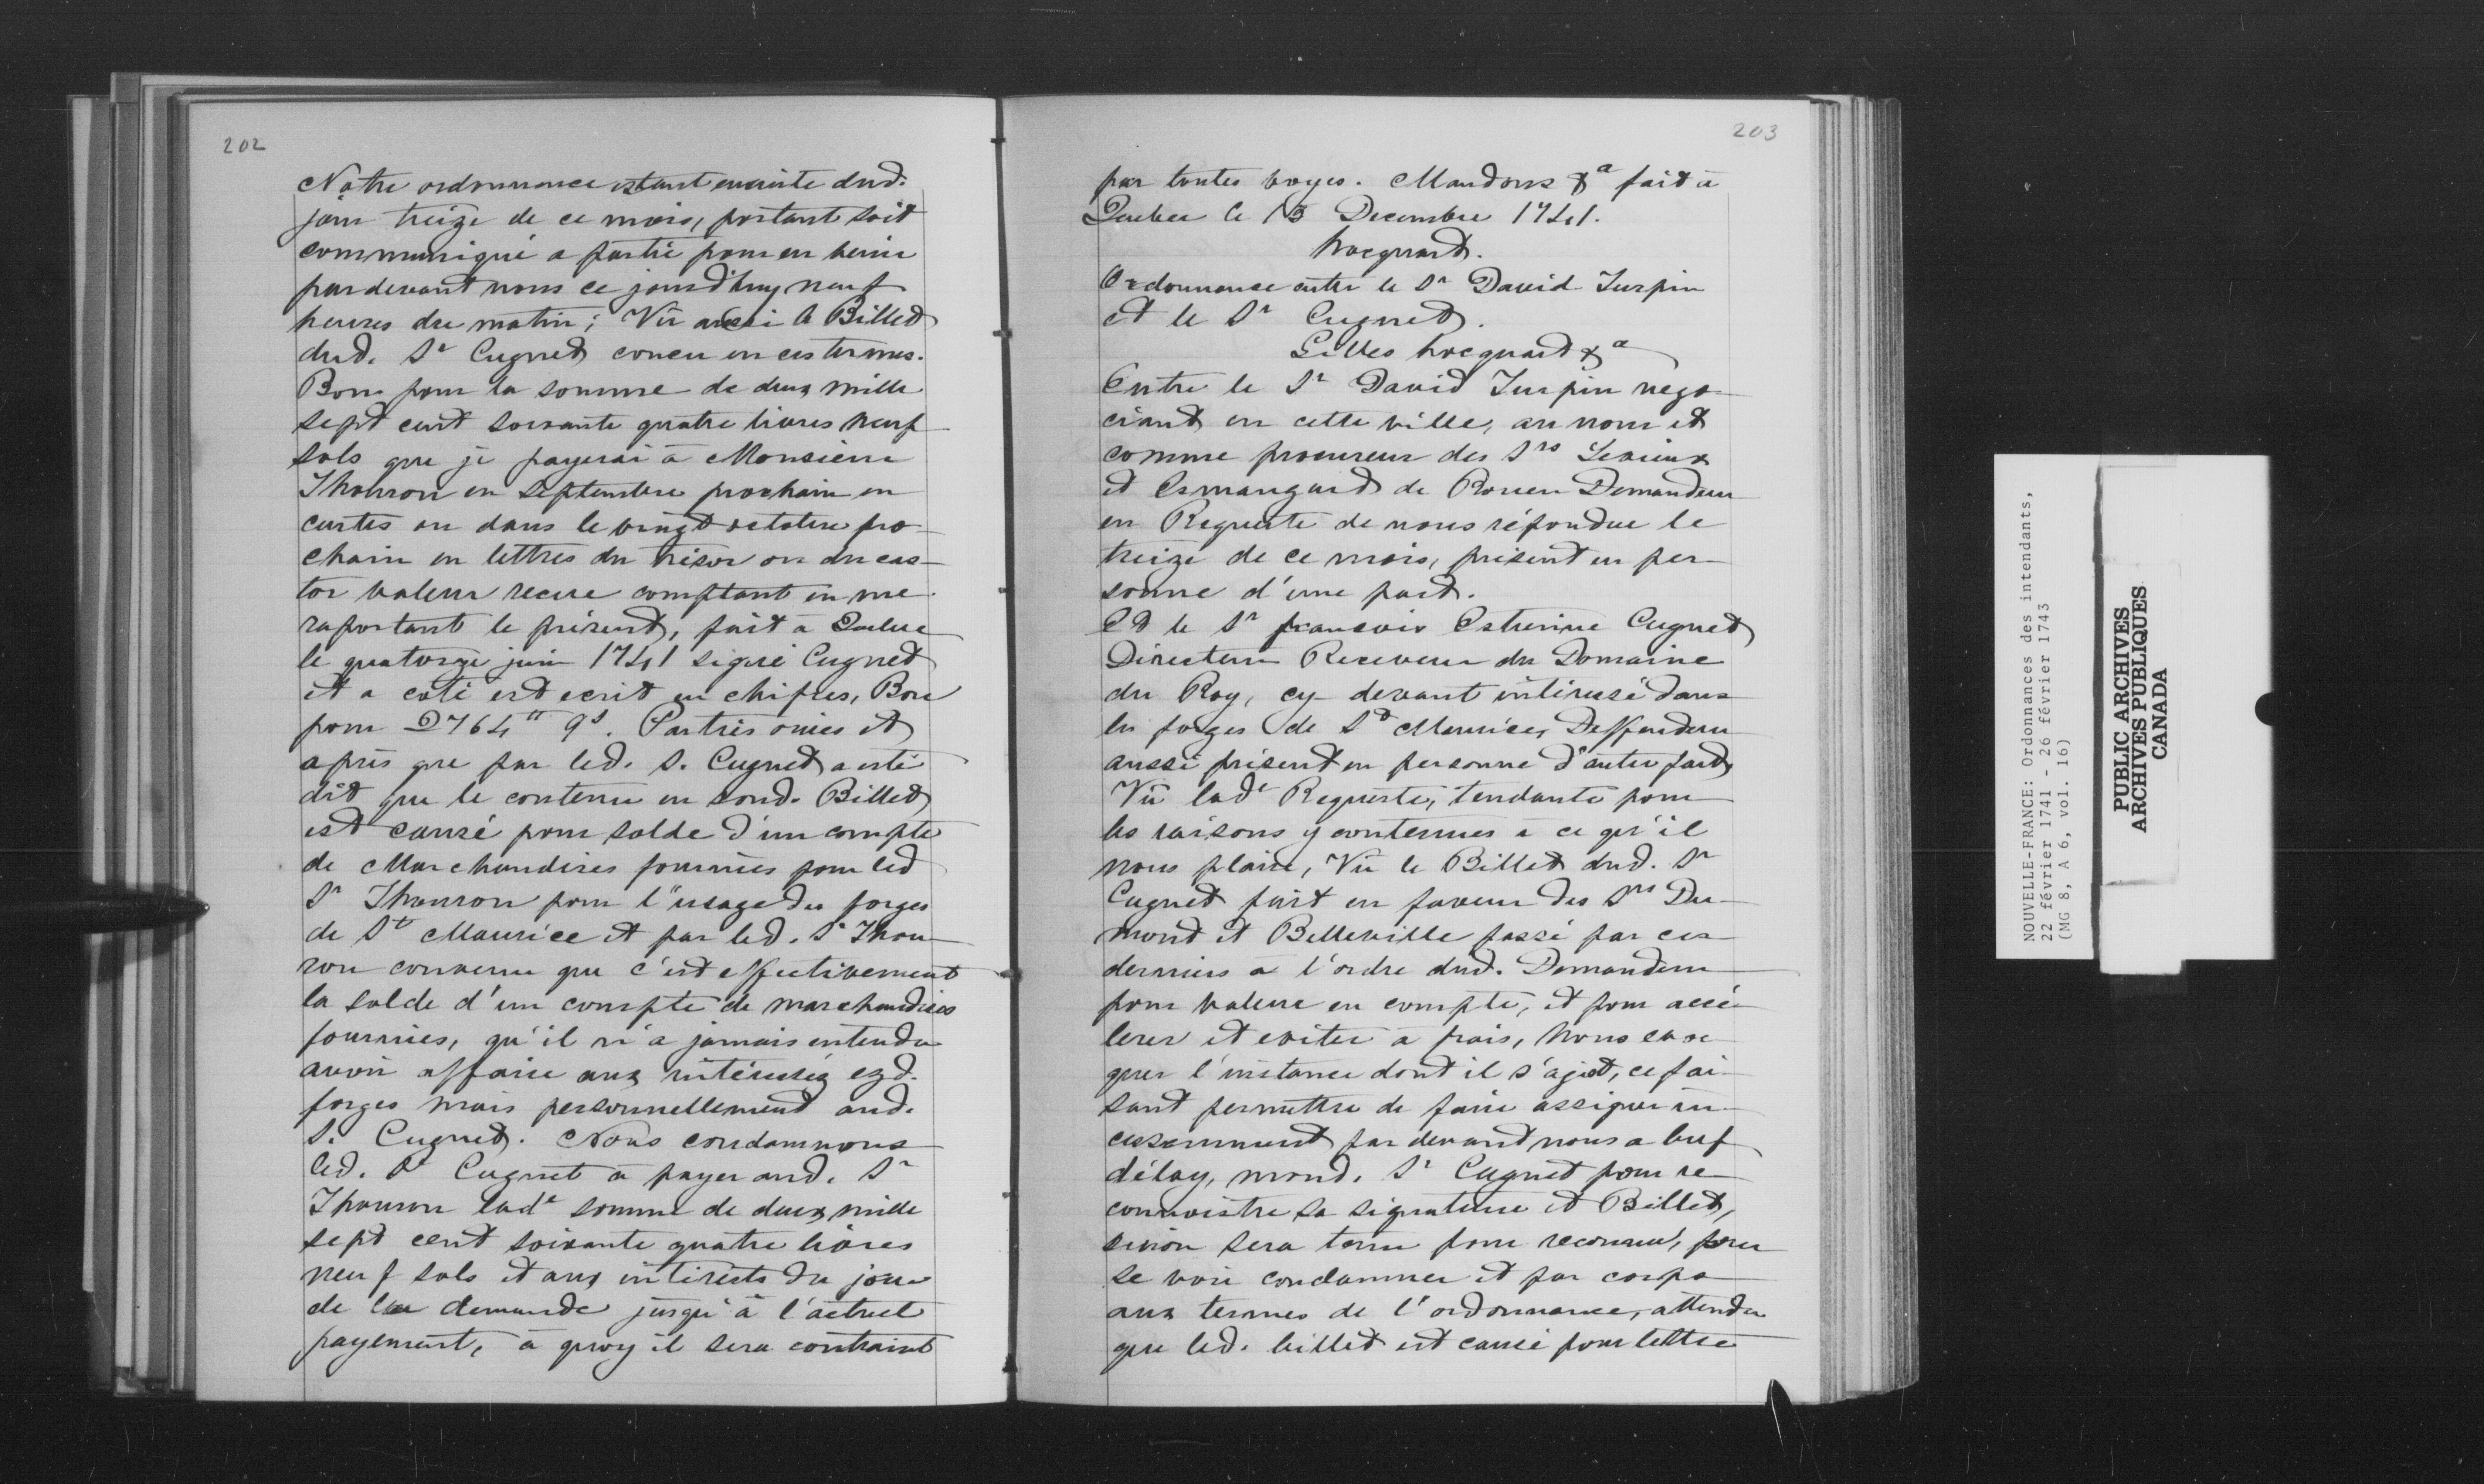 202
Notre ordonnance estant ensuite dud.
jour treize de ce mois, portant soit
communiqué a partie pour en venir
pardevant nous ce jourd'huy neuf
heures du matin; Vû aussi le Billet
dud. Sr Cugnet concu en ces termes.
Bon pour la somme de deux mille
sept cent soixante quatre livres neuf
sols que je payerai à Monsieur
Thouron en Septembre prochain en
cartes ou dans le vingt octobre pro-
chain en lettres du trésor ou du cas-
tor valeur recue comptant en me
raportant le présent, fait a Quebec
le quatorze juin 1741 signé Cugnet
et a coté est ecrit en chifres, Bon
pour 2764tt 9s. Parties ouies et
après que par led. S. Cugnet a esté
dit que le contenu en sond. Billet
est causé pour solde d'un compte
de Marchandises fournies pour led
Sr Thouron pour l'usage des forges
de St Maurice et par led. Sr Thou-
ron convenu que c'est effectivement
la solde d'un compte de marchandises
fournies, qu'il n'a jamais entendu
avoir affaire aux intéressés ezd.
forges mais personnellement aud.
S. Cugnet. Nous condamnons
led. Sr Cugnet à payer aud. Sr
Thouron lade somme de deux mille
sept cent soixante quatre livres
neuf sols et aux intérests du jour
de la demande jusqu'à l'actuel
payement, à quoy il sera contraint
203
par toutes voyes. Mandons &a fait à
Quebec le 13 Decembre 1741.
hocquart.
Ordonnance entre le Sr David Turpin
et le Sr Cugnet.
Gilles hocquart &a
Entre le Sr David Turpin négo-
ciant en cette ville, au nom et
comme procureur des Srs Levieux
et Esmangard de Rouen Demandeur
en Requeste de nous répondue le
treize de ce mois, présent en per-
sonne d'une part.
Et le Sr francois Estienne Cugnet
Directeur Receveur du Domaine
du Roy, cy-devant intéressé dans
les forges de St Maurice, Deffendeur
aussi présent en personne d'autre part
Vû lade Requeste, tendante pour
les raisons y contenues a ce qu'il
nous plaise, Vû le Billet dud. Sr
Cugnet fait en faveur des Srs Du-
mont et Belleville passé par ces
derniers à l'ordre dud. Demandeur
pour valeur en compte, et pour accé-
lerer et eviter a frais, nous evo-
quer l'instance dont il s'agist, ce fai-
sant permettre de faire assigner in-
cessamment par devant nous a bref
délay, mond. Sr Cugnet pour re-
connoistre sa signature et Billet,
sinon sera tenu pour reconnu, pour
se voir condamner et par corps
aux termes de l'ordonnance, attendu
que led. billet est causé pour lettre
NOUVELLE-FRANCE: Ordonnances des intendants,
22 février 1741 - 26 février 1743
(MG 8, A 6, vol. 16)
PUBLIC ARCHIVES
ARCHIVES PUBLIQUES
CANADA